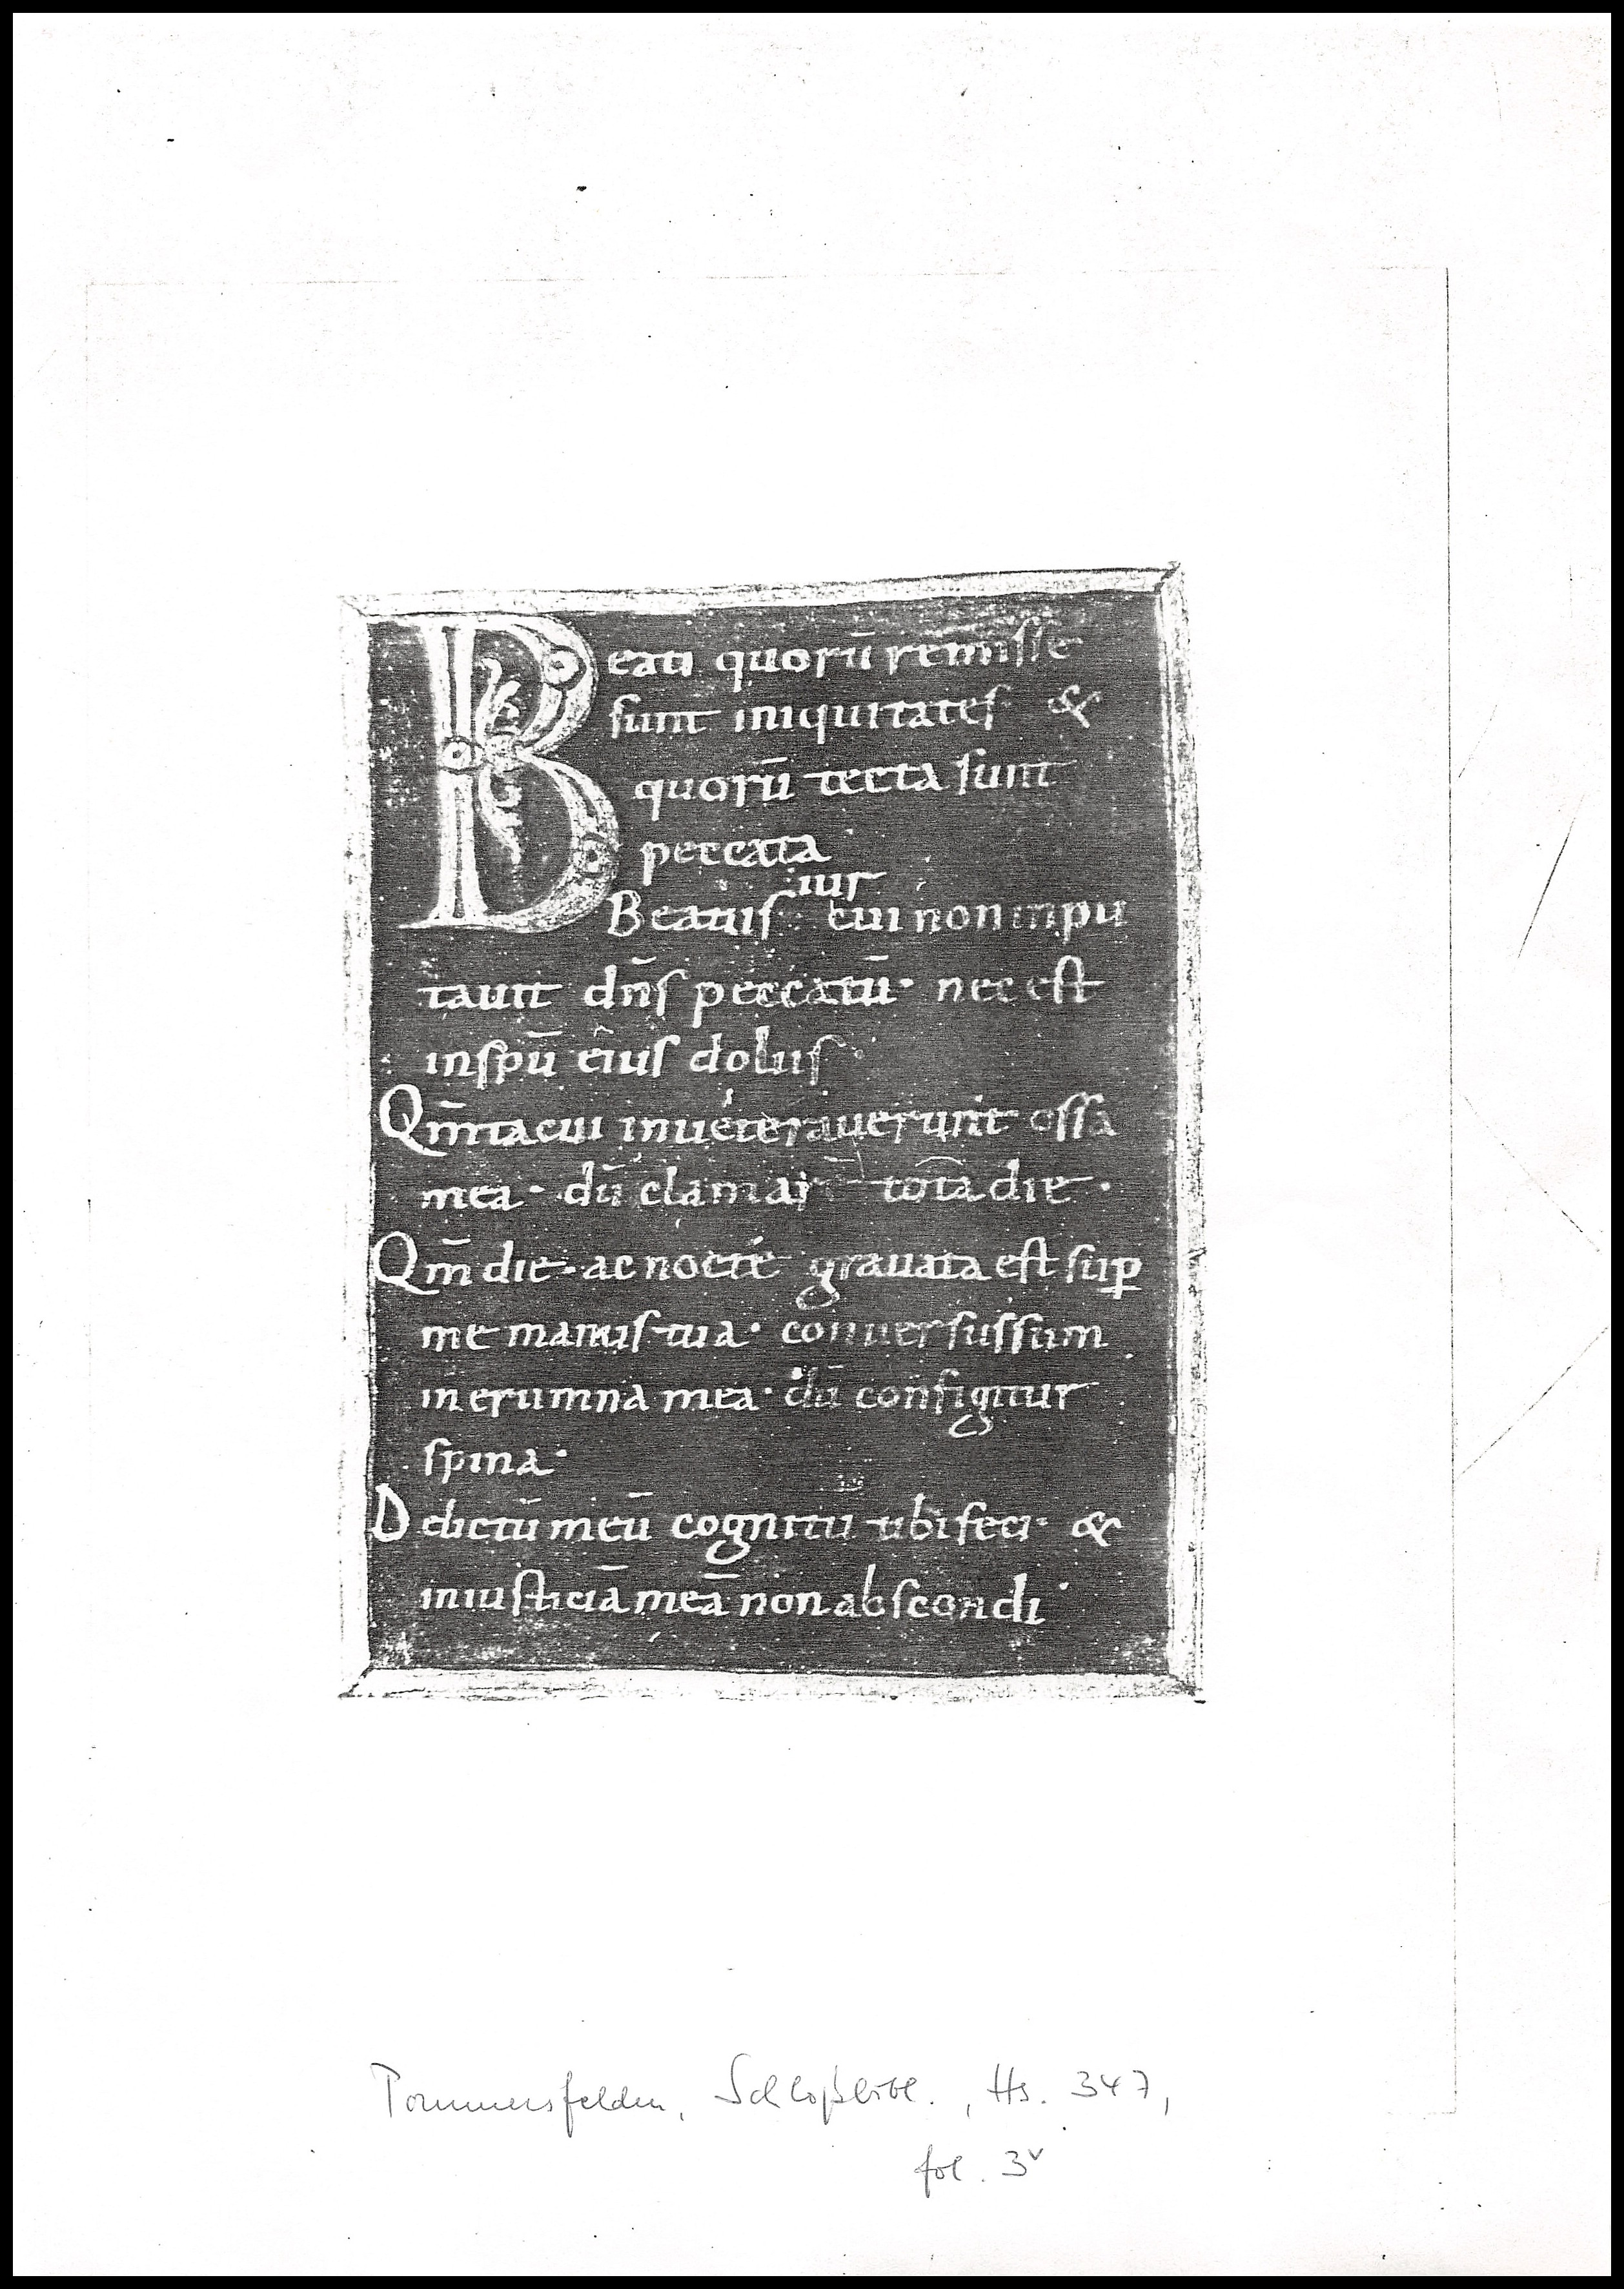 Beati quorū remisse
sunt iniquitates &
quorū tecta sunt
peccata
uir
Beatus cui non inpu
tauit dn̄s peccatū· nec est
in spū eius dolus
Qm̄ tacui inueterauerunt ossa
mea· dū clamarē tota die·
Qm̄ die· ac nocte grauata est sup̄
me manus tua· conuersus sum
in erumna mea· dū configitur
spina·
Delictū meū cognitū tibi feci· &
iniusticiā meā non abscondi
Pommersfelden, Schloßbibl., Hs. 347,
fol. 3v